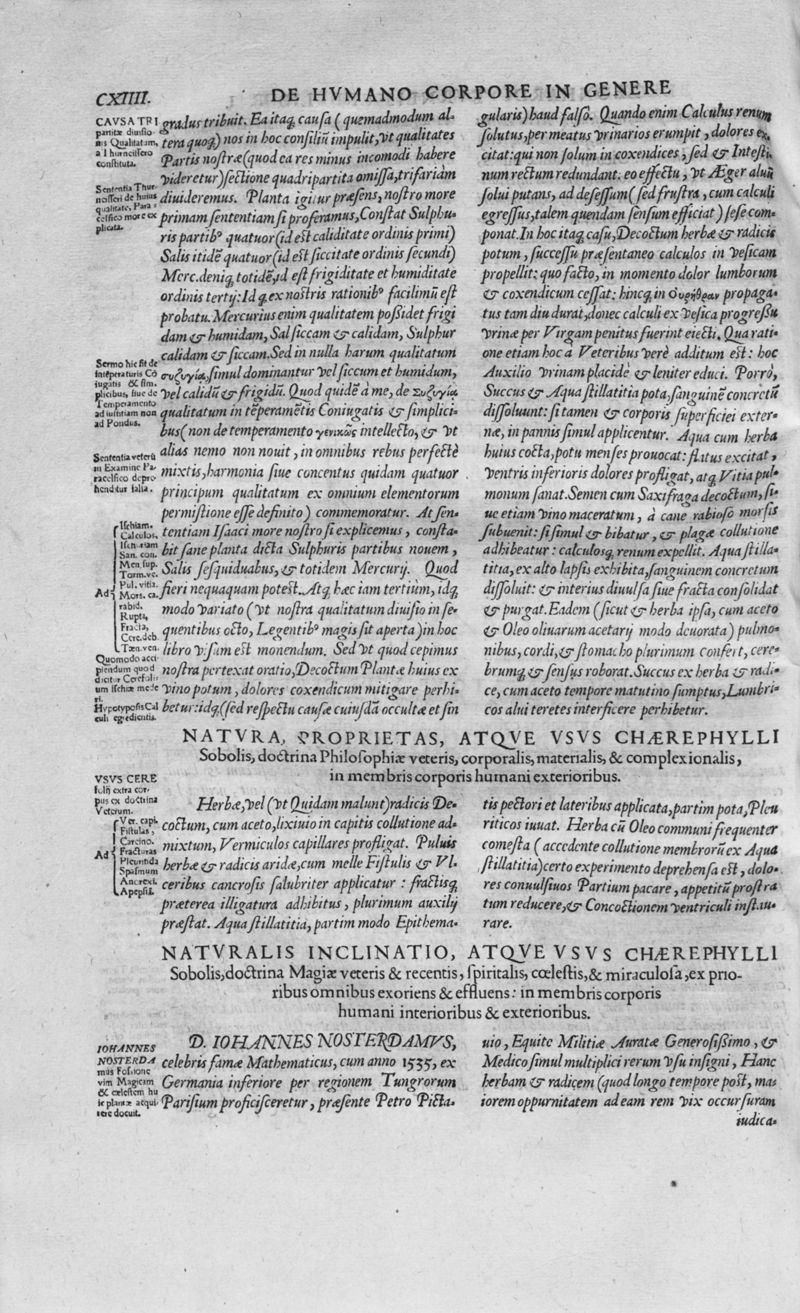 CXIIII.
DE HVMANO CORPORE IN GENERE
CAVSA TRI
partitæ diuisio
nis Qualitatum,
a Thurneissero
constituta.
Sententia Thur
neisseri de huius
qualitate, Para
celsico more ex
plicata.
Sermo hic fit de
intēperaturis Cō
iugatis & sim⸗
plicibus, siue de
Temperamento
ad iustitiam non
ad Pondus.
Sententia veterū
in Examine Pa⸗
racelsico depre⸗
henditur falsa.
Ad
Ischiam.
Calculos.
Isch⸗uriam
San. con.
Men. sup.
Torm. ve.
Pul. vitia.
Mors. ca.
rabid.
Rupta,
Fracta,
Cere. deb.
Tæn. ven.
Quomodo acci
piendum quod
dicitur Cerefoliu
um Ischiæ mede
ri.
Hypotyposis Cal
culi egredientis.
gradus tribuit. Ea itaq; causa (quemadmodum al⸗
tera quoq;) nos in hoc consiliū impulit, vt qualitates
Partis nostræ (quod ea res minus incomodi habere
videretur) sectione quadripartita omissa, trifariam
diuideremus. Planta igitur præsens, nostro more
primam sententiam si proferamus, Constat Sulphu⸗
ris partibꝰ quatuor (id est caliditate ordinis primi)
Salis itidē quatuor (id est siccitate ordinis secundi)
Merc. deniq; totidē, id est frigiditate et humiditate
ordinis tertij: Id q; ex nostris rationibꝰ facilimū est
probatu. Mercurius enim qualitatem possidet frigi
dam & humidam, Sal siccam & calidam, Sulphur
calidam & siccam. Sed in nulla harum qualitatum
συζυγίᾳ, simul dominantur vel siccum et humidum,
vel calidū & frigidū. Quod quidē à me, de Συζυγίᾳ
qualitatum in tēperamētis Coniugatis & simplici⸗
bus (non de temperamento γενικῶς intellecto, & vt
alias nemo non nouit, in omnibus rebus perfectè
mixtis, harmonia siue concentus quidam quatuor
principum qualitatum ex omnium elementorum
permistione esse definito) commemoratur. At sen⸗
tentiam Isaaci more nostro si explicemus, consta⸗
bit sane planta dicta Sulphuris partibus nouem,
Salis sesquiduabus, & totidem Mercurij. Quod
fieri nequaquam potest. Atq; hæc iam tertiùm, idq;
modo variato (vt nostra qualitatum diuisio in se⸗
quentibus octo, Legentibꝰ magis sit aperta) in hoc
libro visum est monendum. Sed vt quod cepimus
nostra pertexat oratio, Decoctum Plantæ huius ex
vino potum, dolores coxendicum mitigare perhi⸗
betur: idq; (sed respectu causæ cuiusdā occultæ et sin
gularis) haud falso. Quando enim Calculus renum
solutus, per meatus vrinarios erumpit, dolores ex⸗
citat: qui non solum in coxendices, sed & Intesti⸗
num rectum redundant. eo effectu, vt Æger aluū
solui putans, ad desessum (sed frustra, cum calculi
egressus, talem quendam sensum efficiat) sese com⸗
ponat. In hoc itaq; casu, Decoctum herbæ & radicis
potum, successu præsentaneo calculos in vesicam
propellit: quo facto, in momento dolor lumborum
& coxendicum cessat: hincq; in Ουρήθραν propaga⸗
tus tam diu durat, donec calculi ex vesica progressu
vrinæ per Virgam penitus fuerint eiecti. Qua rati⸗
one etiam hoc a Veteribus verè additum est: hoc
Auxilio vrinam placidè & leniter educi. Porrò,
Succus & Aqua stillatitia pota, sanguinē concretū
dissoluunt: si tamen & corporis superficiei exter⸗
næ, in pannis simul applicentur. Aqua cum herba
huius cocta, potu menses prouocat: flatus excitat,
ventris inferioris dolores profligat, atq; Vitia pul⸗
monum sanat. Semen cum Saxifraga decoctum, si⸗
ue etiam vino maceratum, à cane rabioso morsis
subuenit: si simul & bibatur, & plagæ collutione
adhibeatur: calculosq; renum expellit. Aqua stilla⸗
titia, ex alto lapsis exhibita, sanguinem concretum
dissoluit: & interius diuulsa siue fracta consolidat
& purgat. Eadem (sicut & herba ipsa, cum aceto
& Oleo oliuarum acetarij modo deuorata) pulmo⸗
nibus, cordi, & stomacho plurimum confert, cere⸗
brumq; & sensus roborat. Succus ex herba & radi⸗
ce, cum aceto tempore matutino sumptus, Lumbri⸗
cos alui teretes interficere perhibetur.
NATVRA, PROPRIETAS, ATQVE VSVS CHÆREPHYLLI
Sobolis, doctrina Philosophiæ veteris, corporalis, materialis, & complexionalis,
in membris corporis humani exterioribus.
VSVS CERE
folij extra cor⸗
pus ex doctrina
Veterum.
Ad
Ver. capi.
Fistulas,
Carcino.
Fracturas
Pleuritida
Spasmum
Anorexi.
Apepsiā.
Herbæ, vel (vt Quidam malunt) radicis De⸗
coctum, cum aceto, lixiuio in capitis collutione ad⸗
mixtum, Vermiculos capillares profligat. Puluis
herbæ & radicis aridæ, cum melle Fistulis & Vl⸗
ceribus cancrosis salubriter applicatur: fractisq;
præterea illigatura adhibitus, plurimum auxilij
præstat. Aqua stillatitia, partim modo Epithema⸗
tis pectori et lateribus applicata, partim pota, Pleu
riticos iuuat. Herba cū Oleo communi frequenter
comesta (accedente collutione membrorū ex Aqua
stillatitia) certo experimento deprehensa est, dolo⸗
res conuulsiuos Partium pacare, appetitū prostra
tum reducere, & Concoctionem ventriculi instau⸗
rare.
NATVRALIS INCLINATIO, ATQVE VSVS CHÆREPHYLLI
Sobolis, doctrina Magiæ veteris & recentis, spiritalis, cœlestis, & miraculosa, ex prio⸗
ribus omnibus exoriens & effluens: in membris corporis
humani interioribus & exterioribus.
IOHANNES
NOSTERDA
mus Fossione
vim Magicam
& cœlestem hu
ic plantæ acqui⸗
rere docuit.
D. IOHANNES NOSTERDAMVS,
celebris famæ Mathematicus, cum anno 1535, ex
Germania inferiore per regionem Tungrorum
Parisium proficisceretur, præsente Petro Picta⸗
uio, Equite Militiæ Auratæ Generosissimo, &
Medico simul multiplici rerum vsu insigni, Hanc
herbam & radicem (quod longo tempore post, ma⸗
iorem oppurnitatem ad eam rem vix occursuram
iudica⸗